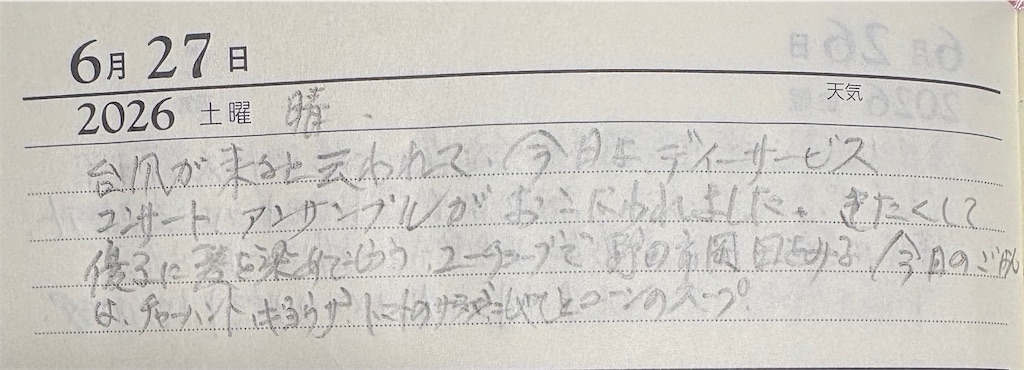 6月27日
天気
2026 土曜 晴.
台風が来ると云われて、今日は ディーサービス
コンサート アンサンブルが おこなわれました。きたくして
優子に髪を染めてもらう、ユーチューブで 野田市 岡田をみる 今日のご飯
は、チャーハント はるうサ トマトのサラダ とコーンのスープ。